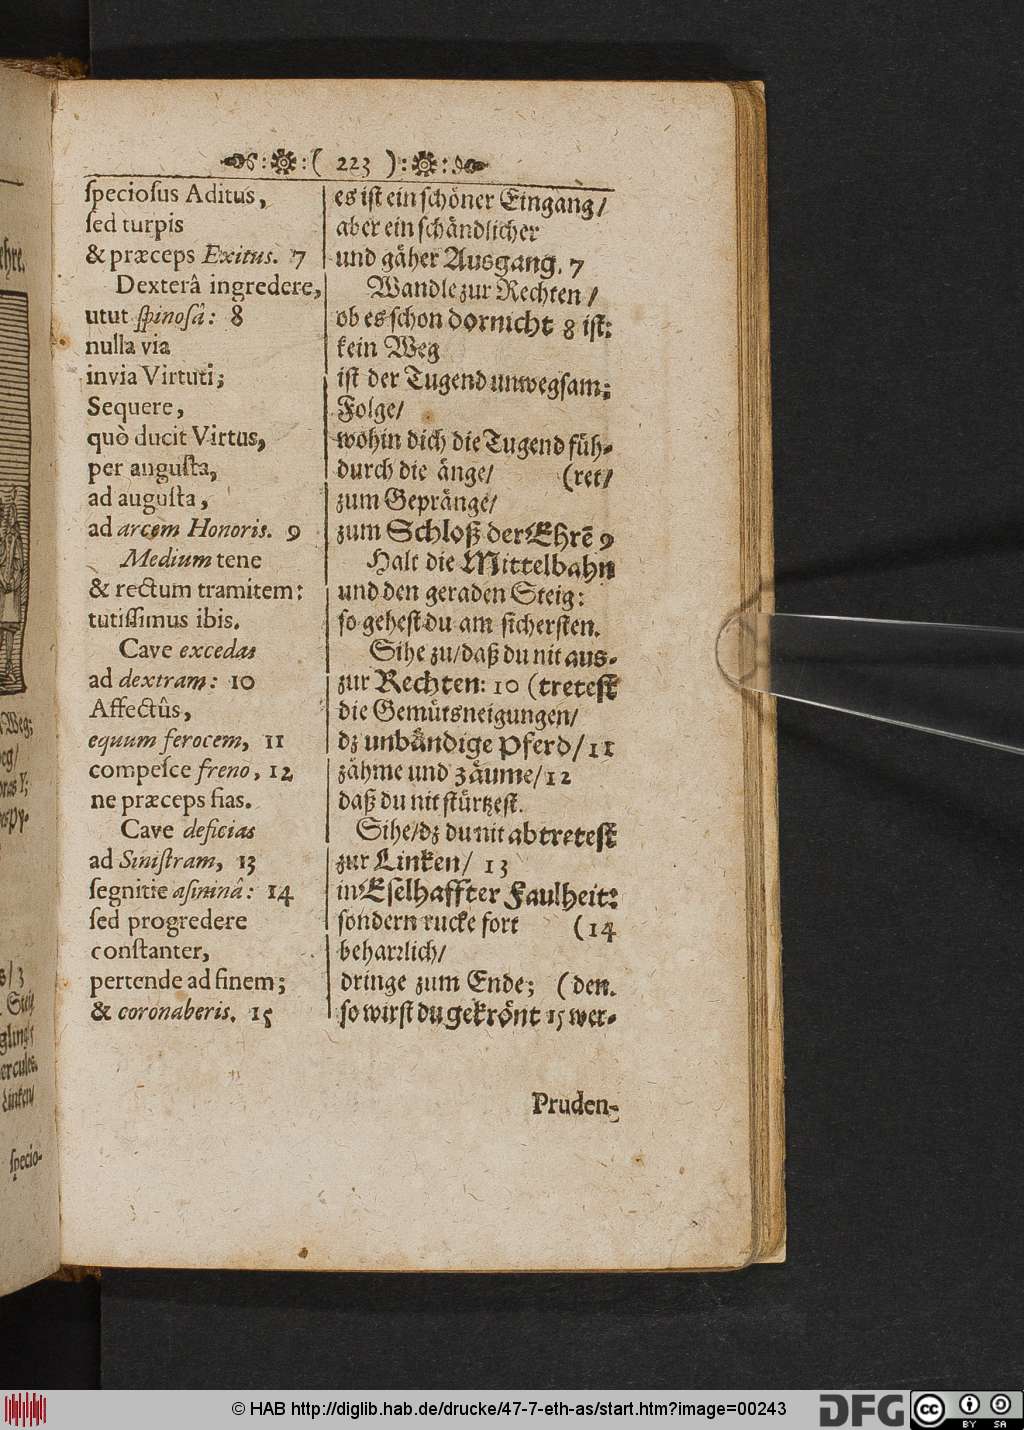 :( 223 ):
speciosus Aditus,
sed turpis
& præceps Exitus. 7
Dexterâ ingredere,
utut spinosâ: 8
nulla via
invia Virtuti;
Sequere,
quò ducit Virtus,
per angusta,
ad augusta,
ad arcem Honoris. 9
Medium tene
& rectum tramitem:
tutissimus ibis.
Cave excedas
ad dextram: 10
Affectûs,
equum ferocem, 11
compesce freno, 12
ne præceps fias.
Cave deficias
ad Sinistram, 13
segnitie asininâ: 14
sed progredere
constanter,
pertende ad finem;
& coronaberis. 15
es ist ein schöner Eingang/
aber ein schändlicher
und gäher Ausgang. 7
Wandle zur Rechten/
ob es schon dornicht 8 ist:
kein Weg
ist der Tugend unwegsam;
Folge/
wohin dich die Tugend füh-
durch die änge/ (ret/
zum Gepränge/
zum Schloß der Ehrē 9
Halt die Mittelbahn
und den geraden Steig:
so gehest du am sichersten.
Sihe zu/daß du nit aus-
zur Rechten: 10 (tretest
die Gemütsneigungen/
dz unbändige Pferd/11
zähme und zäume/12
daß du nit stürtzest.
Sihe/dz du nit abtretest
zur Linken/ 13
in Eselhaffter Faulheit:
sondern rucke fort (14
beharrlich/
dringe zum Ende; (den.
so wirst du gekrönt 15 wer-
Pruden-
specio-
© HAB http://diglib.hab.de/drucke/47-7-eth-as/start.htm?image=00243
DFG
cc BY SA